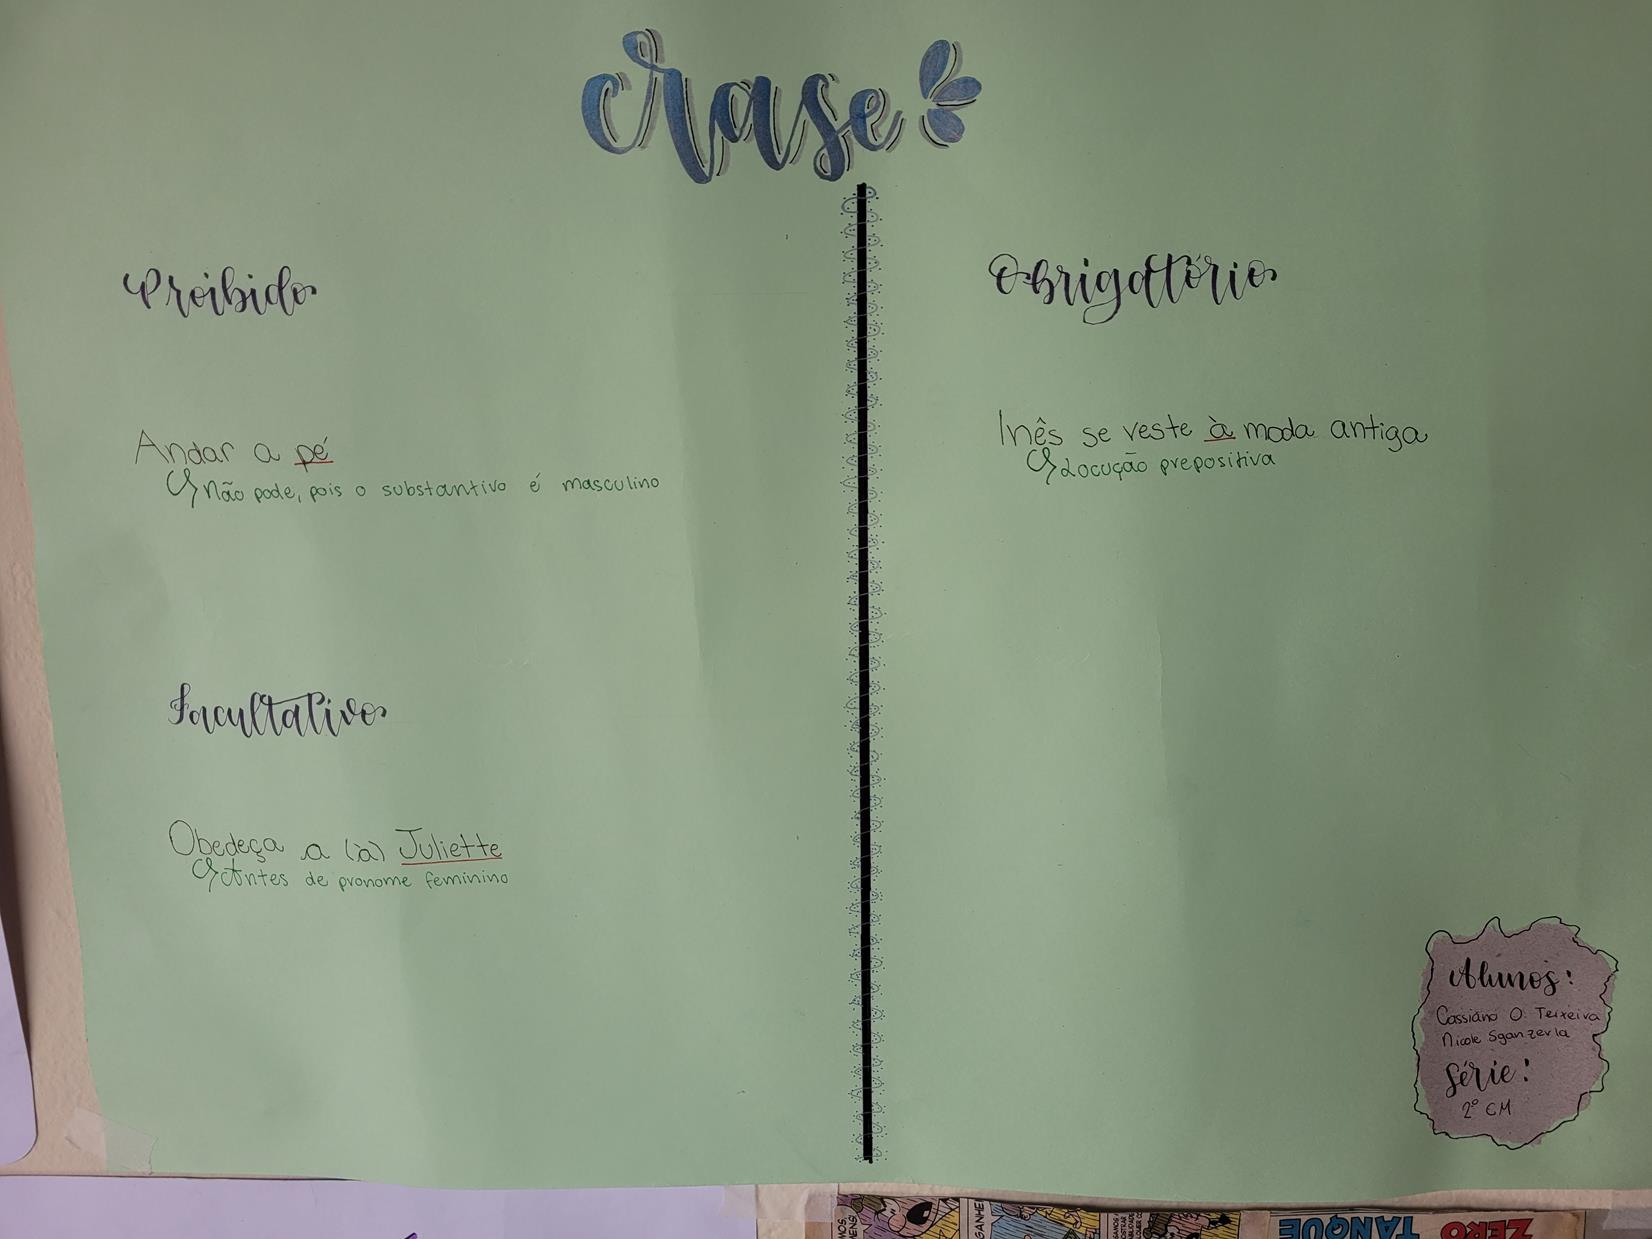 Crase
Proibido
Andar a pé
Não pode, pois o substantivo é masculino
Facultativo
Obedeça a (à) Juliette
Antes de pronome feminino
Obrigatório
Inês se veste à moda antiga
Locução prepositiva
Alunos:
Cassiano O. Teixeira
Nicole Sganzerla
Série:
2º EM
GANHE
ZERO
TANQUE